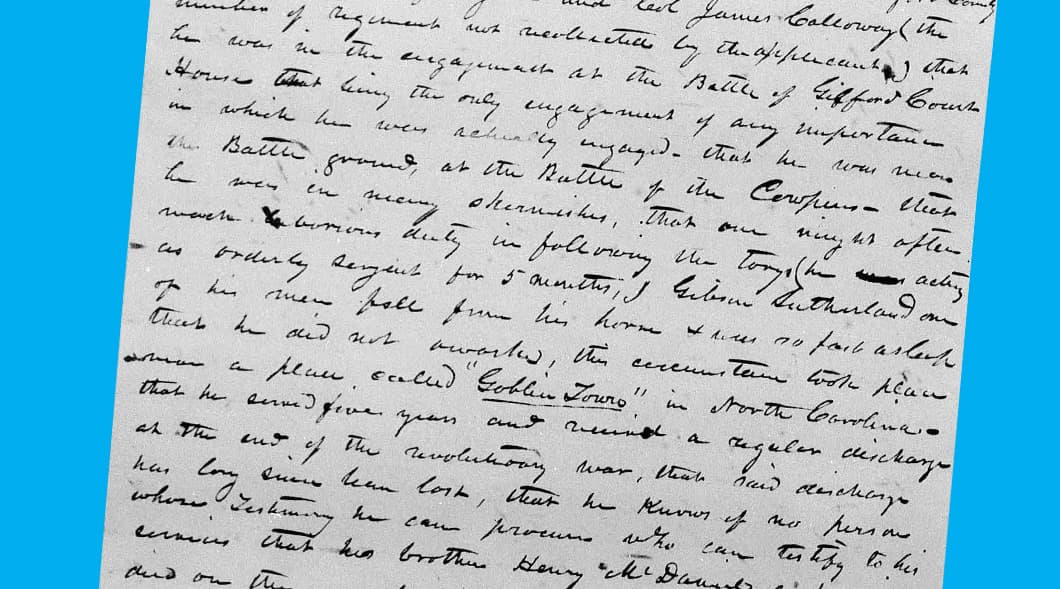 and Col James Calloway (the
number of regiment not recollected by the applicant) that
he was in the engagement at the Battle of Gilford Court
House that being the only engagement of any importance
in which he was actually engaged - that he was near
the Battle ground, at the Battle of the Cowpens - that
he was in many skermishes, that one night after
much laborious duty in following the torys (he was acting
as orderly sergent for 5 months,) Gibson Sutherland one
of his men fell from his horse & was so fast asleep
that he did not awake, this circumstance took place
near a place called "Goblin Town" in North Carolina -
that he served five years and received a regular discharge
at the end of the revolutionary war, that said discharge
has long since been lost, that he knows of no person
whose Testimony he can procure who can testify to his
services that his brother Henry McDaniel
died on the